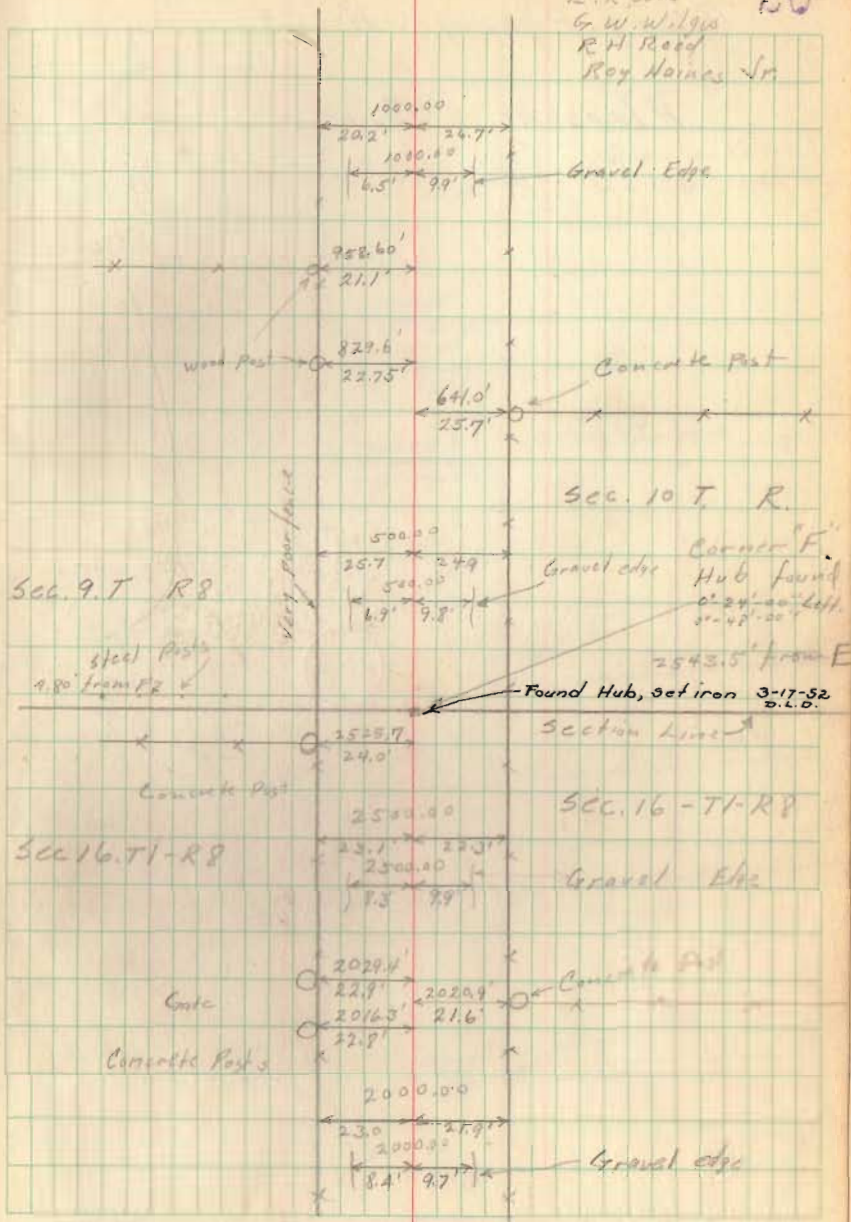 G.W.Wilgis
R H Reed
Roy Haines Jr.
1000.00
20.2' 24.7'
1000.00
6.5' 9.9' Gravel Edge
958.60'
21.1'
829.6'
Wood Post
22.75'
Concrete Post
641.0'
25.7'
Very poor fence
Sec. 10 T. R.
500.00
25.7 24.9
500.00
6.9' 9.8' Gravel edge
Corner "F"
Hub found
0°-24'-00" Left.
0°-48'-00"
2543.5' from E
Sec. 9. T R8
Steel Posts
4.80' from
Found Hub, set iron 3-17-52
D.L.D.
Section Line
2525.7
24.0'
Concrete Post
Sec. 16 - T1-R8
2500.00
23.1' 22.3'
Sec 16. T1-R8
2500.00
8.3 9.9 Gravel Edge
2029.4'
22.9'
Concrete Post
2020.9'
21.6'
Gate
2016.3'
22.8'
Concrete Posts
2000.00
23.0 21.9'
2000.00
8.4' 9.7' Gravel edge